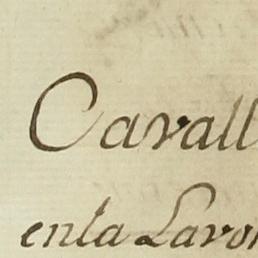 Cavall
en la Lavor